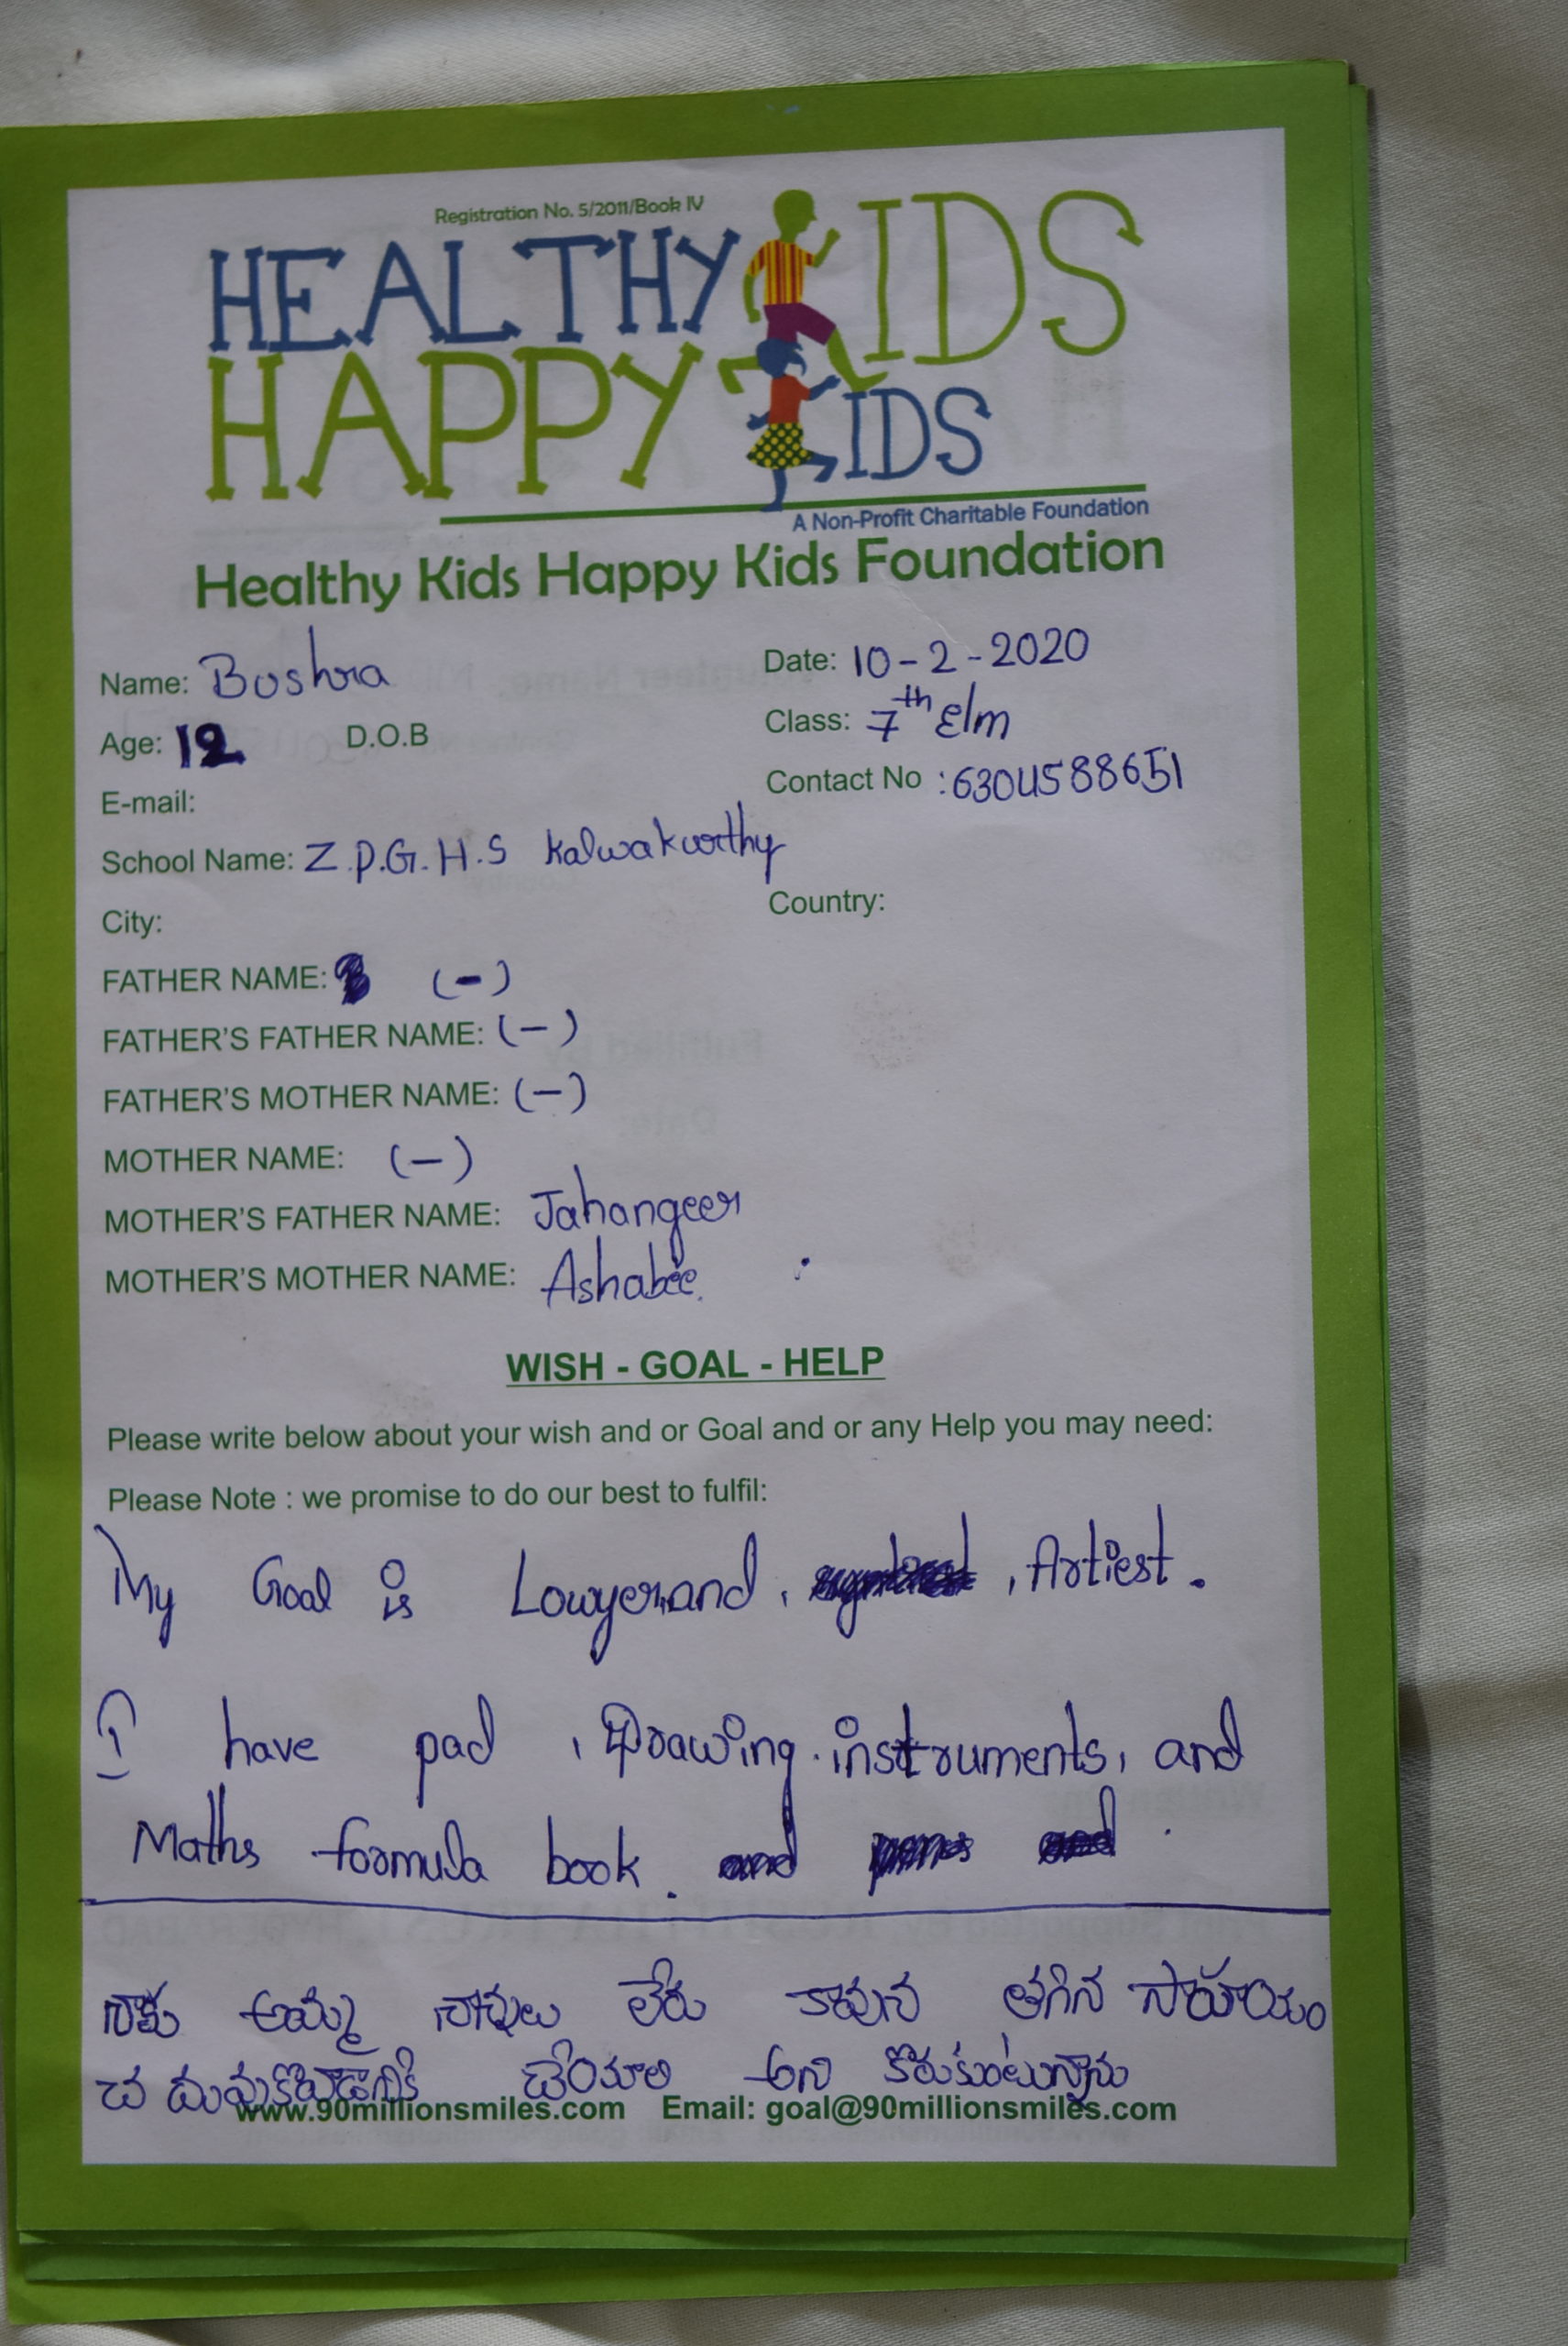 Registration No. 5/2011/Book IV
HEALTHY KIDS
HAPPY KIDS
A Non-Profit Charitable Foundation
Healthy Kids Happy Kids Foundation
Name: Boshra Date: 10-2-2020
Age: 12 D.O.B Class: 7th Elm
E-mail: Contact No :6304588651
School Name: Z.P.G.H.S Kalwakurthy
City: Country:
FATHER NAME: (-)
FATHER'S FATHER NAME: (-)
FATHER'S MOTHER NAME: (-)
MOTHER NAME: (-)
MOTHER'S FATHER NAME: Jahangeer
MOTHER'S MOTHER NAME: Ashabee.
WISH - GOAL - HELP
Please write below about your wish and or Goal and or any Help you may need:
Please Note : we promise to do our best to fulfil:
My Goal is Lowyer,and, , Artiest.
I have pad , Drawing instruments, and
Maths formula book.
నాకు అమ్మ నాన్నలు లేరు కావున తగిన సాహాయం
చదువుకోవడానికి చేయాలి అని కొరుకుంటున్నాను
www.90millionsmiles.com Email: goal@90millionsmiles.com